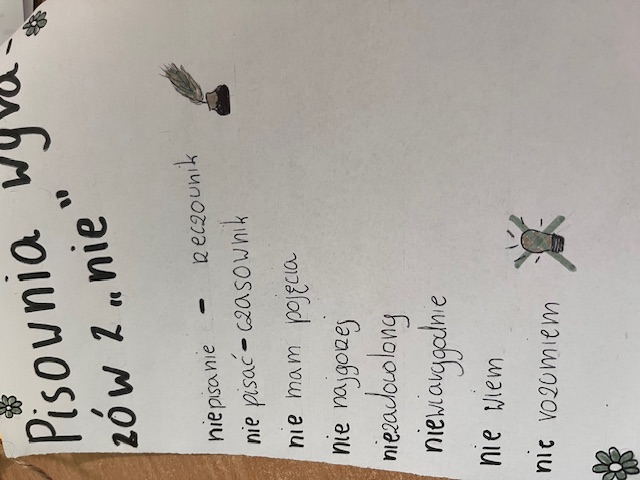 Pisownia wyra-
zów z „nie"
niepisanie - rzeczownik
nie pisać - czasownik
nie mam pojęcia
nie najgorzej
niezadowolony
niewiarygodnie
nie wiem
nie rozumiem